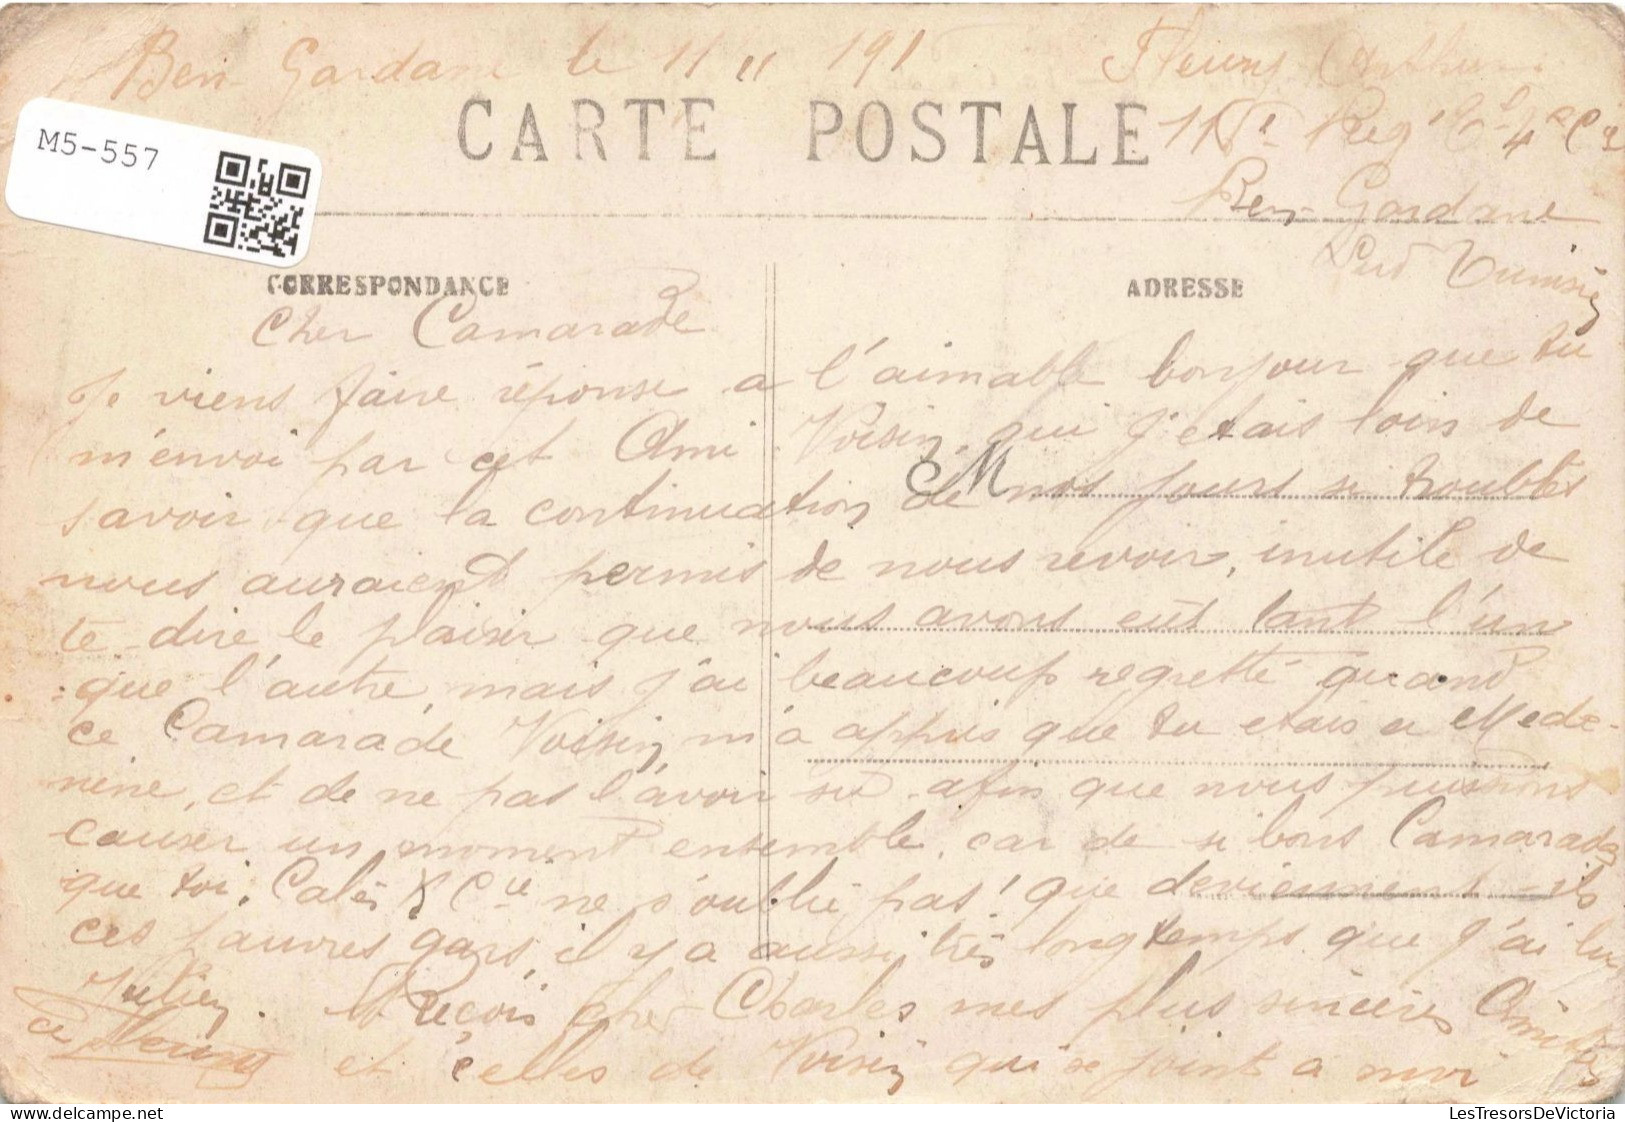 Ben Gardane le 11 11 191
Fleury Arthur
CARTE POSTALE
Ben Gardane
Sud Tunisie
M5-557
CORRESPONDANCE
ADRESSE
Cher Camarade
Je viens faire réponse a l'aimable bonjour que tu
m'envoi par cet Ami Voisin, qui j'etais loin de
savoir que la continuation de nos jours si troublés
nous auraient permis de nous revoir, inutile de
te dire le plaisir que nous avons eût tant l'un
que l'autre, mais j'ai beaucoup regretté quand
ce Camarade Voisin m'a appris que tu etais a Mede-
nine, et de ne pas l'avoir su afin que nous puissions
causer un moment ensemble, car de si bons Camarades
que toi, Calés & Cie ne s'oublie pas! que deviennent-ils
ces pauvres gars, il y a aussi très longtemps que j'ai lu
Julien. Reçois cher Charles mes plus sincères Amitiés
ce Fleury et celles de Voisin qui se joint a moi
LesTresorsDeVictoria.com